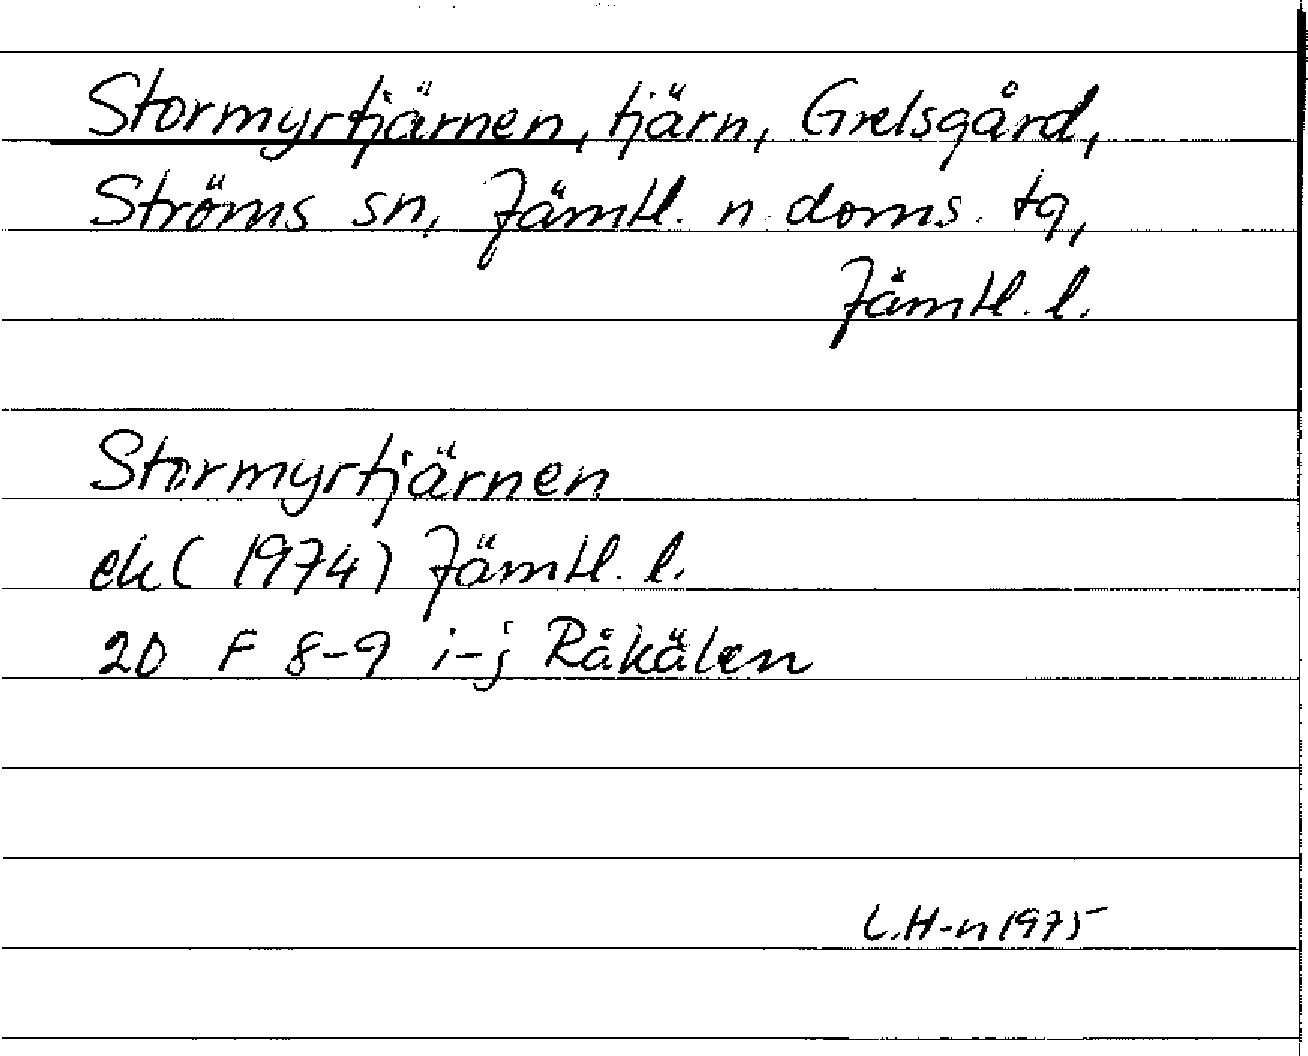 Stormyrtjärnen, tjärn, Grelsgård,
Ströms sn, Jämtl. n. doms. tg,
Jämtl. l.
Stormyrtjärnen
ek (1974) Jämtl. l.
20 F 8-9 i-j Råkälen
L.H-n 1975